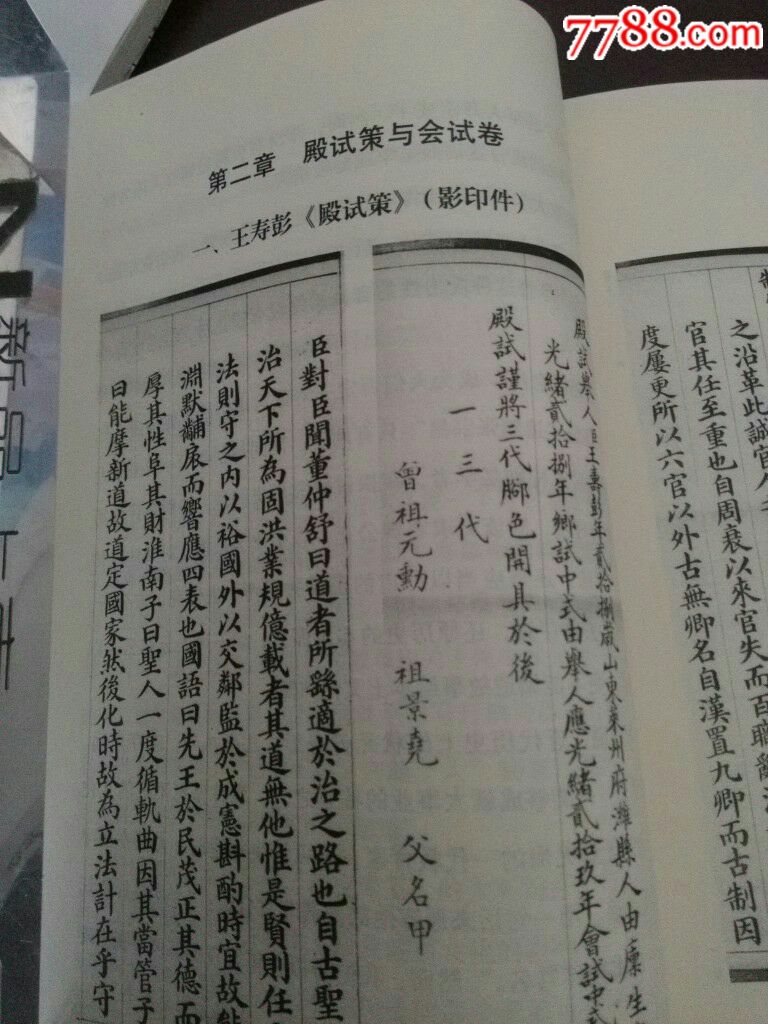 7788.com
第二章 殿试策与会试卷
一、王寿彭《殿试策》（影印件）
殿試舉人臣王壽彭年貳拾捌歲山東萊州府濰縣人由廩生
光緒貳拾捌年鄉試中式由舉人應光緒貳拾玖年會試中式
殿試謹將三代腳色開具於後
一三代
曾祖元勳 祖景堯 父名甲
臣對臣聞董仲舒曰道者所繇適於治之路也自古聖
治天下所為固洪業規億載者其道無他惟是賢則任
法則守之內以裕國外以交鄰監於成憲斟酌時宜故能
淵默黼扆而響應四表也國語曰先王於民茂正其德而
厚其性阜其財淮南子曰聖人一度循軌曲因其當管子
曰能摩新道故道定國家然後化時故為立法計在乎守
之沿革此誠官
官其任至重也自周衰以來官失而百職
度屢更所以六官以外古無卿名自漢置九卿而古制因
新品上